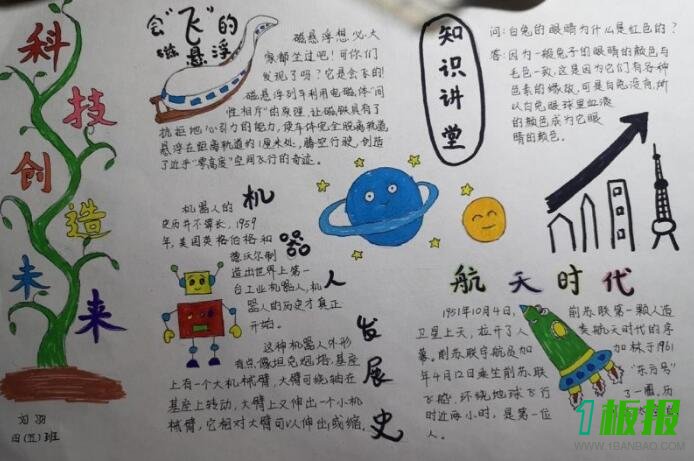 科技创造未来
会"飞"的
磁悬浮
磁悬浮想必大
家都坐过吧！可你们
发现了吗？它是会飞的！
磁悬浮列车利用电磁体"间
性相斥"的原理，让磁铁具有了
抗拒地心引力的能力，使车体完全脱离轨道，
悬浮在距离轨道约1厘米处，腾空行驶，创造
了近乎"零高度"空间飞行的奇迹。
知识讲堂
问：白兔的眼睛为什么是红色的？
答：因为一般兔子的眼睛的颜色与
毛色一致，这是因为它们有各种
色素的缘故，可是白兔没有，所
以白兔眼球里血液
的颜色成为它眼
睛的颜色。
机器人发展史
机器人的
史历并不算长，1959
年，美国英格伯格和
德沃尔制
造出世界上第一
台工业机器人，机
器人的历史才真正
开始。
这种机器人外形
有点像坦克炮塔，基座
上有一个大机械臂，大臂可绕轴在
基座上转动，大臂上又伸出一个小机
械臂，它相对大臂可以伸出或缩。
航天时代
1951年10月4日，
卫星上天，拉开了人
幕，前苏联宇航员加
年4月12日乘坐前苏联
飞船，环绕地球飞行
时近两小时，是第一位
人。
前苏联第一颗人造
类航天时代的序
加林于1961
"东方号"
了一圈，历
四(五)班
1板报
WWW.1BANBAO.COM